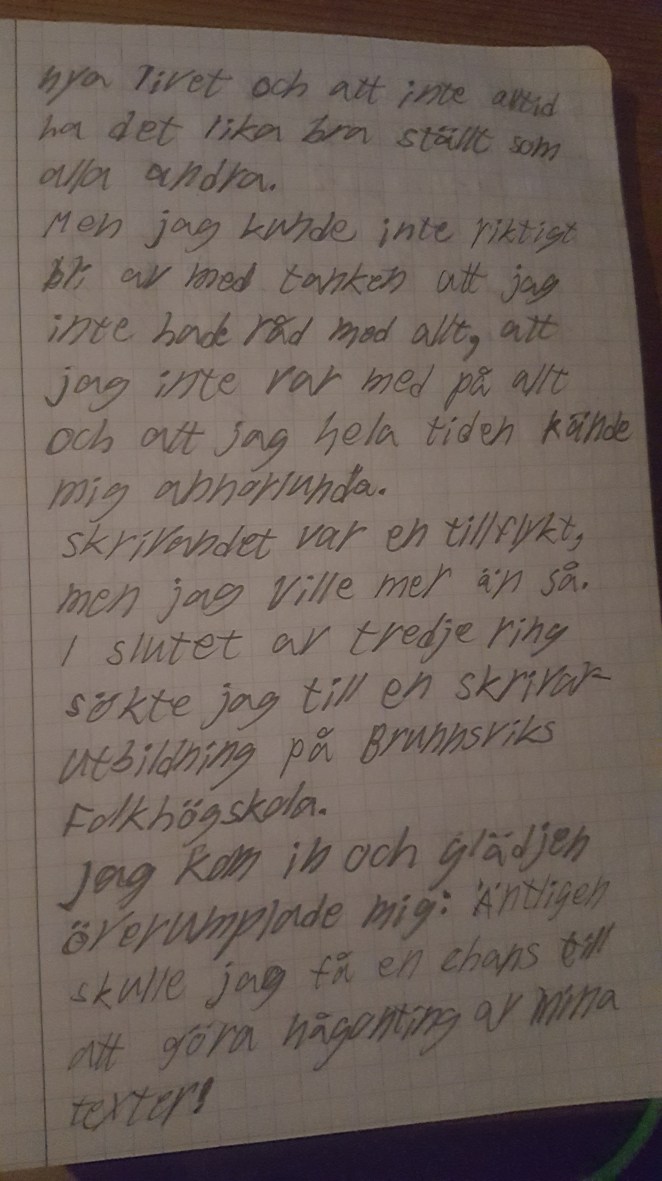 nya livet och att inte alltid
ha det lika bra ställt som
alla andra.
Men jag kunde inte riktigt
bli av med tanken att jag
inte hade råd med allt, att
jag inte var med på allt
och att jag hela tiden kände
mig annorlunda.
skrivandet var en tillflykt,
men jag ville mer än så.
I slutet av tredje ring
sökte jag till en skrivar-
utbildning på Brunnsviks
Folkhögskola.
Jag kom in och glädjen
överrumplade mig: Äntligen
skulle jag få en chans till
att göra någonting av mina
texter!